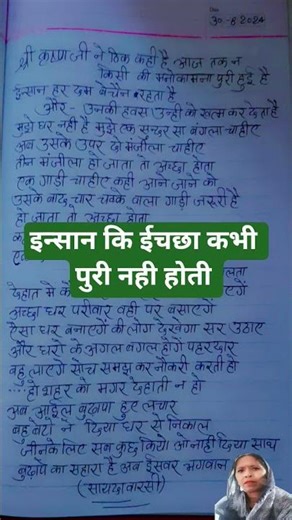 30-6-2024
श्री कृष्ण जी ने ठिक कही है आज तक न
किसी की मनोकामना पुरी हुई है
इन्सान हर दम बेचैन रहता है
और - उनकी हवस उन्ही को खत्म कर देता है
मुझे घर नही है मुझे एक सुन्दर सा बंगला चाहीए
अब उसके उपर दो मंजीला चाहीए
तीन मंजीला हो जाता तो अच्छा होता
एक गाडी चाहीए कही आने जाने को
उसके बाद चार चक्के वाला गाडी जरूरी है
हो जाता तो अच्छा होता
इन्सान कि ईचछा कभी
पुरी नही होती
देहात में
अच्छा घर परीवार वही पर बसाएगें
ऐसा घर बनाएगें की लोग देखेगा सर उठाए
और घरो के अगल बगल होंगे पहरदार
बहु लाएगें सोच समझ कर नौकरी करती हो
....हो शहर का मगर देहाती न हो
अब आईल बुढापा हुए लचार
बहु बेटो ने दिया घर से निकाल
जीनके लिए सब कुछ किये ओ नाही दिया साथ
बुढापे का सहारा है अब ईसवर भगवान
(सायदा वारसी)